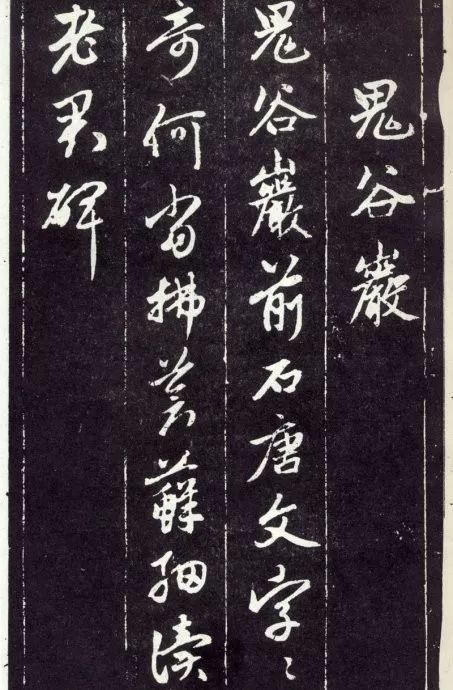 鬼谷巖
鬼谷巖前石唐文字〻
奇何當拂蒼蘚細讀
老君碑